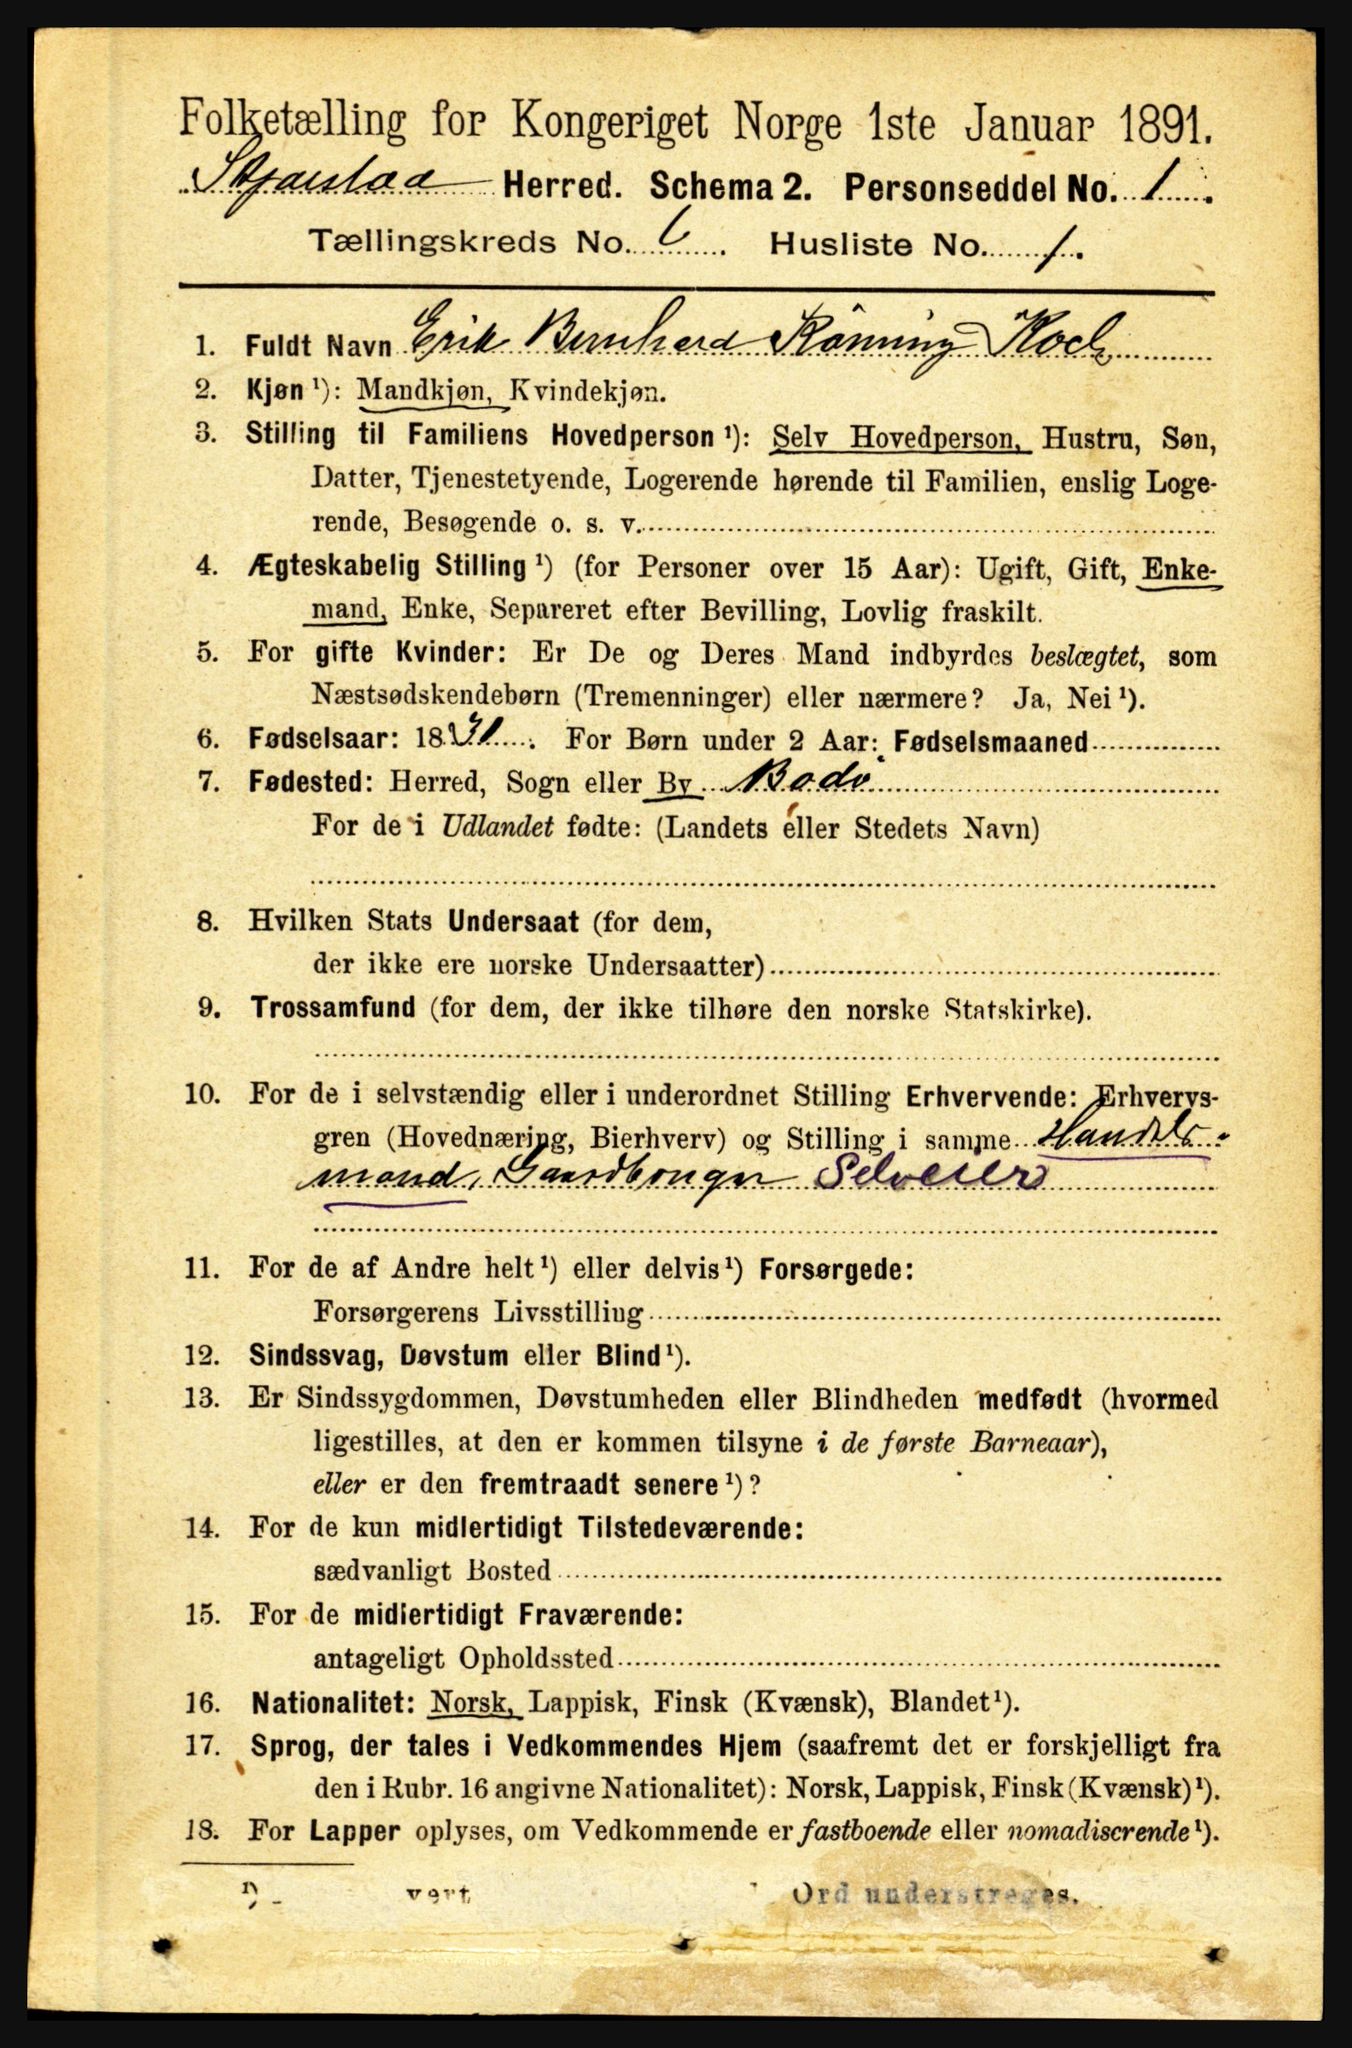 Folketælling for Kongeriget Norge 1ste Januar 1891.
Herred. Schema 2. Personseddel No. 1.
Tællingskreds No. 6. Husliste No. 1.
1. Fuldt Navn Erik Bernhard Rönning Koch
2. Kjøn ¹): Mandkjøn, Kvindekjøn.
3. Stilling til Familiens Hovedperson ¹): Selv Hovedperson, Hustru, Søn,
Datter, Tjenestetyende, Logerende hørende til Familien, enslig Loge-
rende, Besøgende o. s. v.
4. Ægteskabelig Stilling ¹) (for Personer over 15 Aar): Ugift, Gift, Enke-
mand, Enke, Separeret efter Bevilling, Lovlig fraskilt.
5. For gifte Kvinder: Er De og Deres Mand indbyrdes beslægtet, som
Næstsødskendebørn (Tremenninger) eller nærmere? Ja, Nei ¹).
6. Fødselsaar: 18 . For Børn under 2 Aar: Fødselsmaaned
7. Fødested: Herred, Sogn eller By Bodö
For de i Udlandet fødte: (Landets eller Stedets Navn)
8. Hvilken Stats Undersaat (for dem,
der ikke ere norske Undersaatter)
9. Trossamfund (for dem, der ikke tilhøre den norske Statskirke).
10. For de i selvstændig eller i underordnet Stilling Erhvervende: Erhvervs-
gren (Hovednæring, Bierhverv) og Stilling i samme Handels-
mand, Gaardbruger Selveier
11. For de af Andre helt ¹) eller delvis ¹) Forsørgede:
Forsørgerens Livsstilling
12. Sindssvag, Døvstum eller Blind ¹).
13. Er Sindssygdommen, Døvstumheden eller Blindheden medfødt (hvormed
ligestilles, at den er kommen tilsyne i de første Barneaar),
eller er den fremtraadt senere ¹)?
14. For de kun midlertidigt Tilstedeværende:
sædvanligt Bosted
15. For de midlertidigt Fraværende:
antageligt Opholdssted
16. Nationalitet: Norsk, Lappisk, Finsk (Kvænsk), Blandet ¹).
17. Sprog, der tales i Vedkommendes Hjem (saafremt det er forskjelligt fra
den i Rubr. 16 angivne Nationalitet): Norsk, Lappisk, Finsk (Kvænsk) ¹).
18. For Lapper oplyses, om Vedkommende er fastboende eller nomadiserende ¹).
Ord understreges.